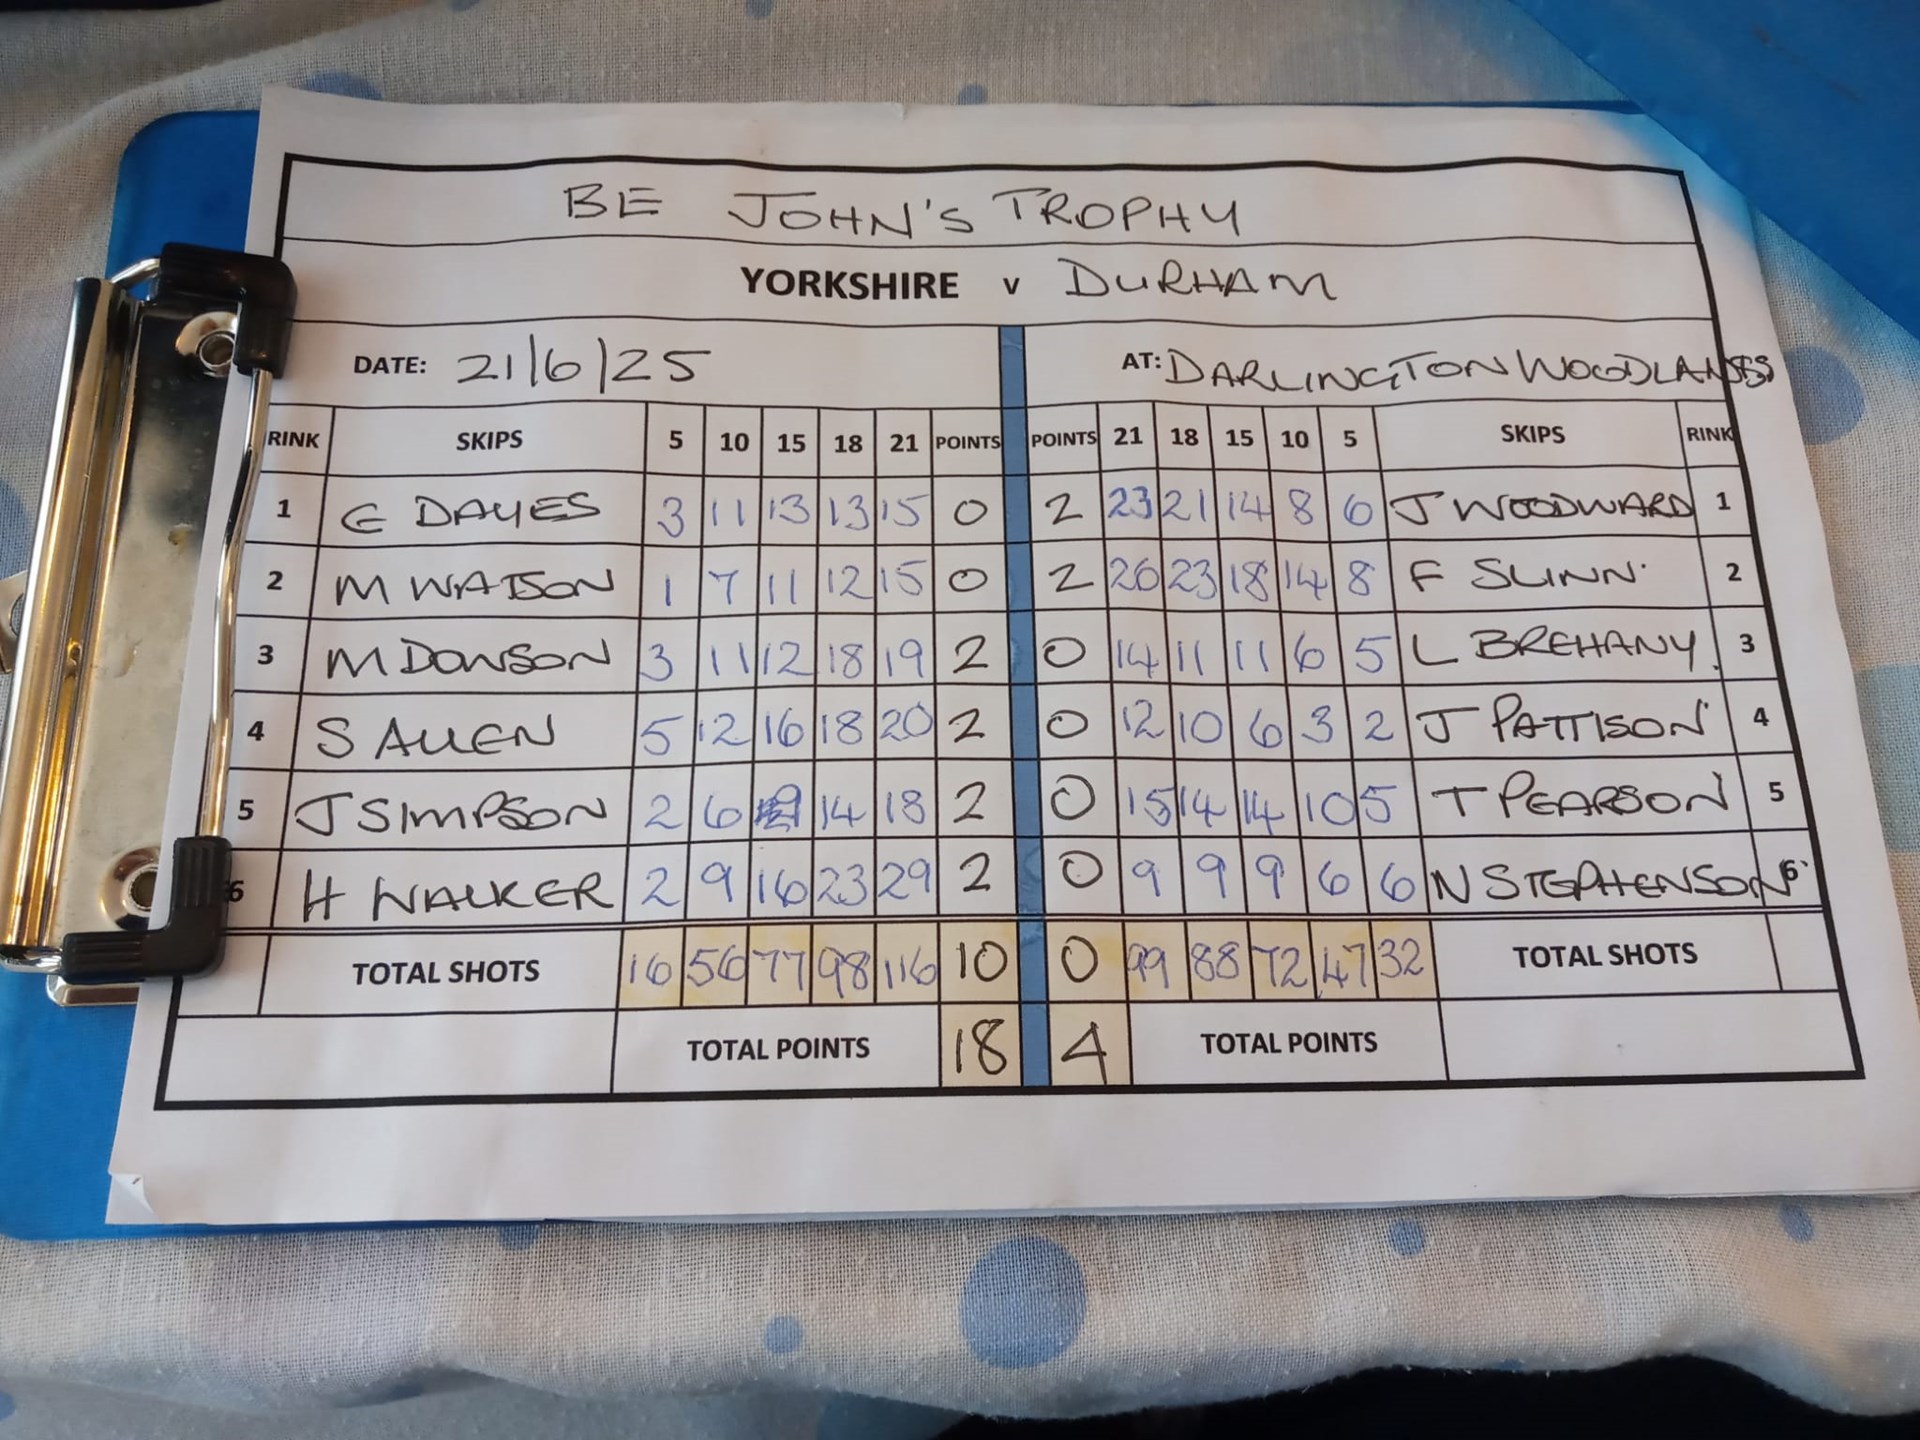 BE JOHN'S TROPHY
YORKSHIRE v DURHAM
DATE: 21/6/25 AT: DARLINGTON WOODLANDS
RINK SKIPS 5 10 15 18 21 POINTS POINTS 21 18 15 10 5 SKIPS RINK
1 G DAYES 3 11 13 13 15 0 2 23 21 14 8 6 J WOODWARD 1
2 M WATSON 1 7 11 12 15 0 2 26 23 18 14 8 F SLINN 2
3 M DOWSON 3 11 12 18 19 2 0 14 11 11 6 5 L BREHANY. 3
4 S ALLEN 5 12 16 18 20 2 0 12 10 6 3 2 J PATTISON 4
5 J SIMPSON 2 6 14 18 2 0 15 14 14 10 5 T PEARSON 5
6 H WALKER 2 9 16 23 29 2 0 9 9 9 6 6 N STEPHENSON 6
TOTAL SHOTS 16 56 77 98 116 10 0 99 88 72 47 32 TOTAL SHOTS
TOTAL POINTS 18 4 TOTAL POINTS